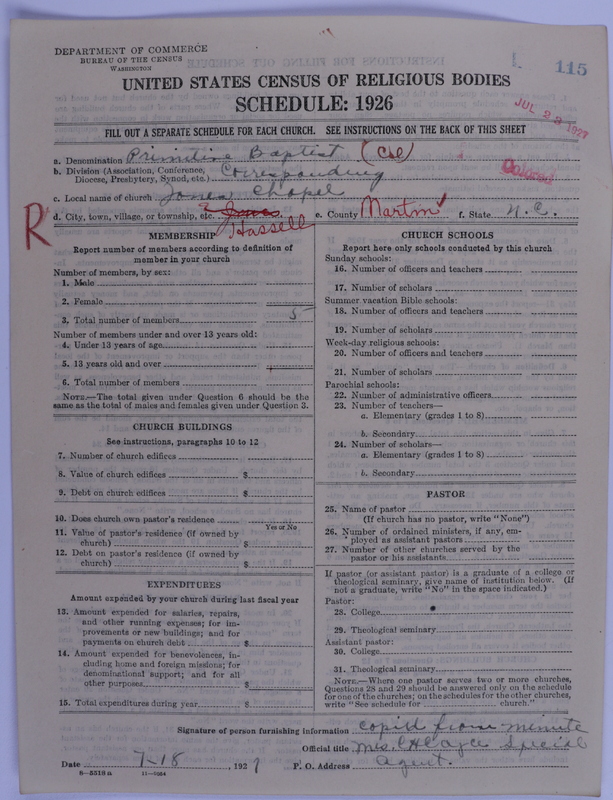 DEPARTMENT OF COMMERCE
BUREAU OF THE CENSUS
WASHINGTON
115
UNITED STATES CENSUS OF RELIGIOUS BODIES
SCHEDULE: 1926
JUL 23 1927
FILL OUT A SEPARATE SCHEDULE FOR EACH CHURCH. SEE INSTRUCTIONS ON THE BACK OF THIS SHEET
a. Denomination Primitive Baptist (Col)
Colored
b. Division (Association, Conference, Diocese, Presbytery, Synod, etc.) Corresponding
c. Local name of church Jones Chapel
d. City, town, village, or township, etc. Hassell e. County Martin f. State N.C.
R
MEMBERSHIP
Report number of members according to definition of
member in your church
Number of members, by sex:
1. Male
2. Female
3. Total number of members 5
Number of members under and over 13 years old:
4. Under 13 years of age
5. 13 years old and over
6. Total number of members
NOTE.—The total given under Question 6 should be the
same as the total of males and females given under Question 3.
CHURCH BUILDINGS
See instructions, paragraphs 10 to 12
7. Number of church edifices
8. Value of church edifices $
9. Debt on church edifices $
10. Does church own pastor's residence
Yes or No
11. Value of pastor's residence (if owned by
church) $
12. Debt on pastor's residence (if owned by
church) $
EXPENDITURES
Amount expended by your church during last fiscal year
13. Amount expended for salaries, repairs,
and other running expenses; for im-
provements or new buildings; and for
payments on church debt $
14. Amount expended for benevolences, in-
cluding home and foreign missions; for
denominational support; and for all
other purposes $
15. Total expenditures during year $
CHURCH SCHOOLS
Report here only schools conducted by this church
Sunday schools:
16. Number of officers and teachers
17. Number of scholars
Summer vacation Bible schools:
18. Number of officers and teachers
19. Number of scholars
Week-day religious schools:
20. Number of officers and teachers
21. Number of scholars
Parochial schools:
22. Number of administrative officers
23. Number of teachers—
a. Elementary (grades 1 to 8)
b. Secondary
24. Number of scholars—
a. Elementary (grades 1 to 8)
b. Secondary
PASTOR
25. Name of pastor
(If church has no pastor, write "None")
26. Number of ordained ministers, if any, em-
ployed as assistant pastors
27. Number of other churches served by the
pastor or his assistants
If pastor (or assistant pastor) is a graduate of a college or
theological seminary, give name of institution below. (If
not a graduate, write "No" in the space indicated.)
Pastor:
28. College
29. Theological seminary
Assistant pastor:
30. College
31. Theological seminary
NOTE.—Where one pastor serves two or more churches,
Questions 28 and 29 should be answered only on the schedule
for one of the churches; on the schedules for the other churches,
write "See schedule for church."
Signature of person furnishing information copid from minute
Official title Mrs. L H Cayce Special
Date 7-18, 1927 P. O. Address Agent.
8—5518a 11—9564